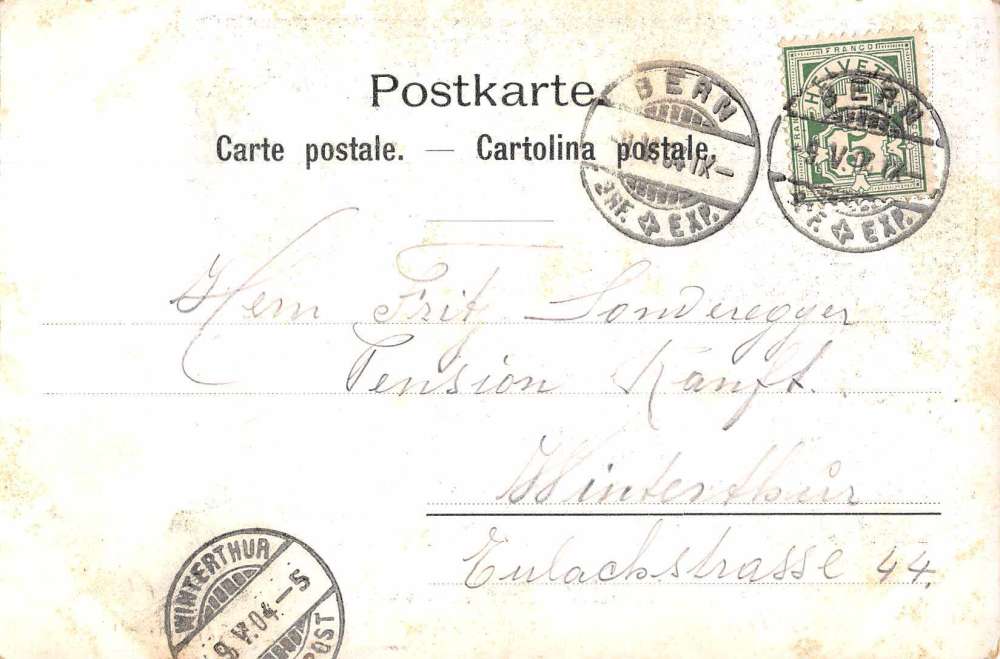 Postkarte.
Carte postale. — Cartolina postale.
BERN
04 IX—
BRF. EXP.
FRANCO
HELVETIA
5
BERN
BRF. EXP.
Herrn Fritz Sonderegger
Pension Ranft.
Winterthur
Eulachstrasse 44.
WINTERTHUR
9.V.04.–5
POST